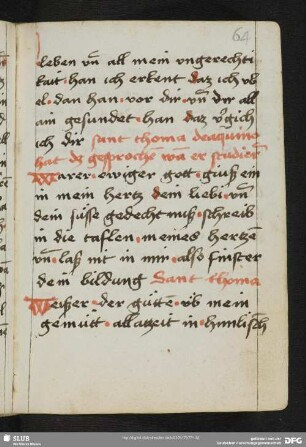 64
leben vn̄ all mein vngerechti
kait han ich erkent daz ich vb
el dan han vor dir vn̄ dir all
ain gesundet han daz v̾gich
ich dir sant thoma deaquino
hat dz gesprochē wā er studiert
Warer ewiger gott giuß ein
in mein hertz dein liebi vn̄
dein süsse gedechtnuß schreib
in die taflen meines hertzē
vn̄ laß nit in mir also finster
dein bildung Sant thoma
Weißer der gütte vß mein
gemütt allatzeit in himlisch
SLUB
DFG